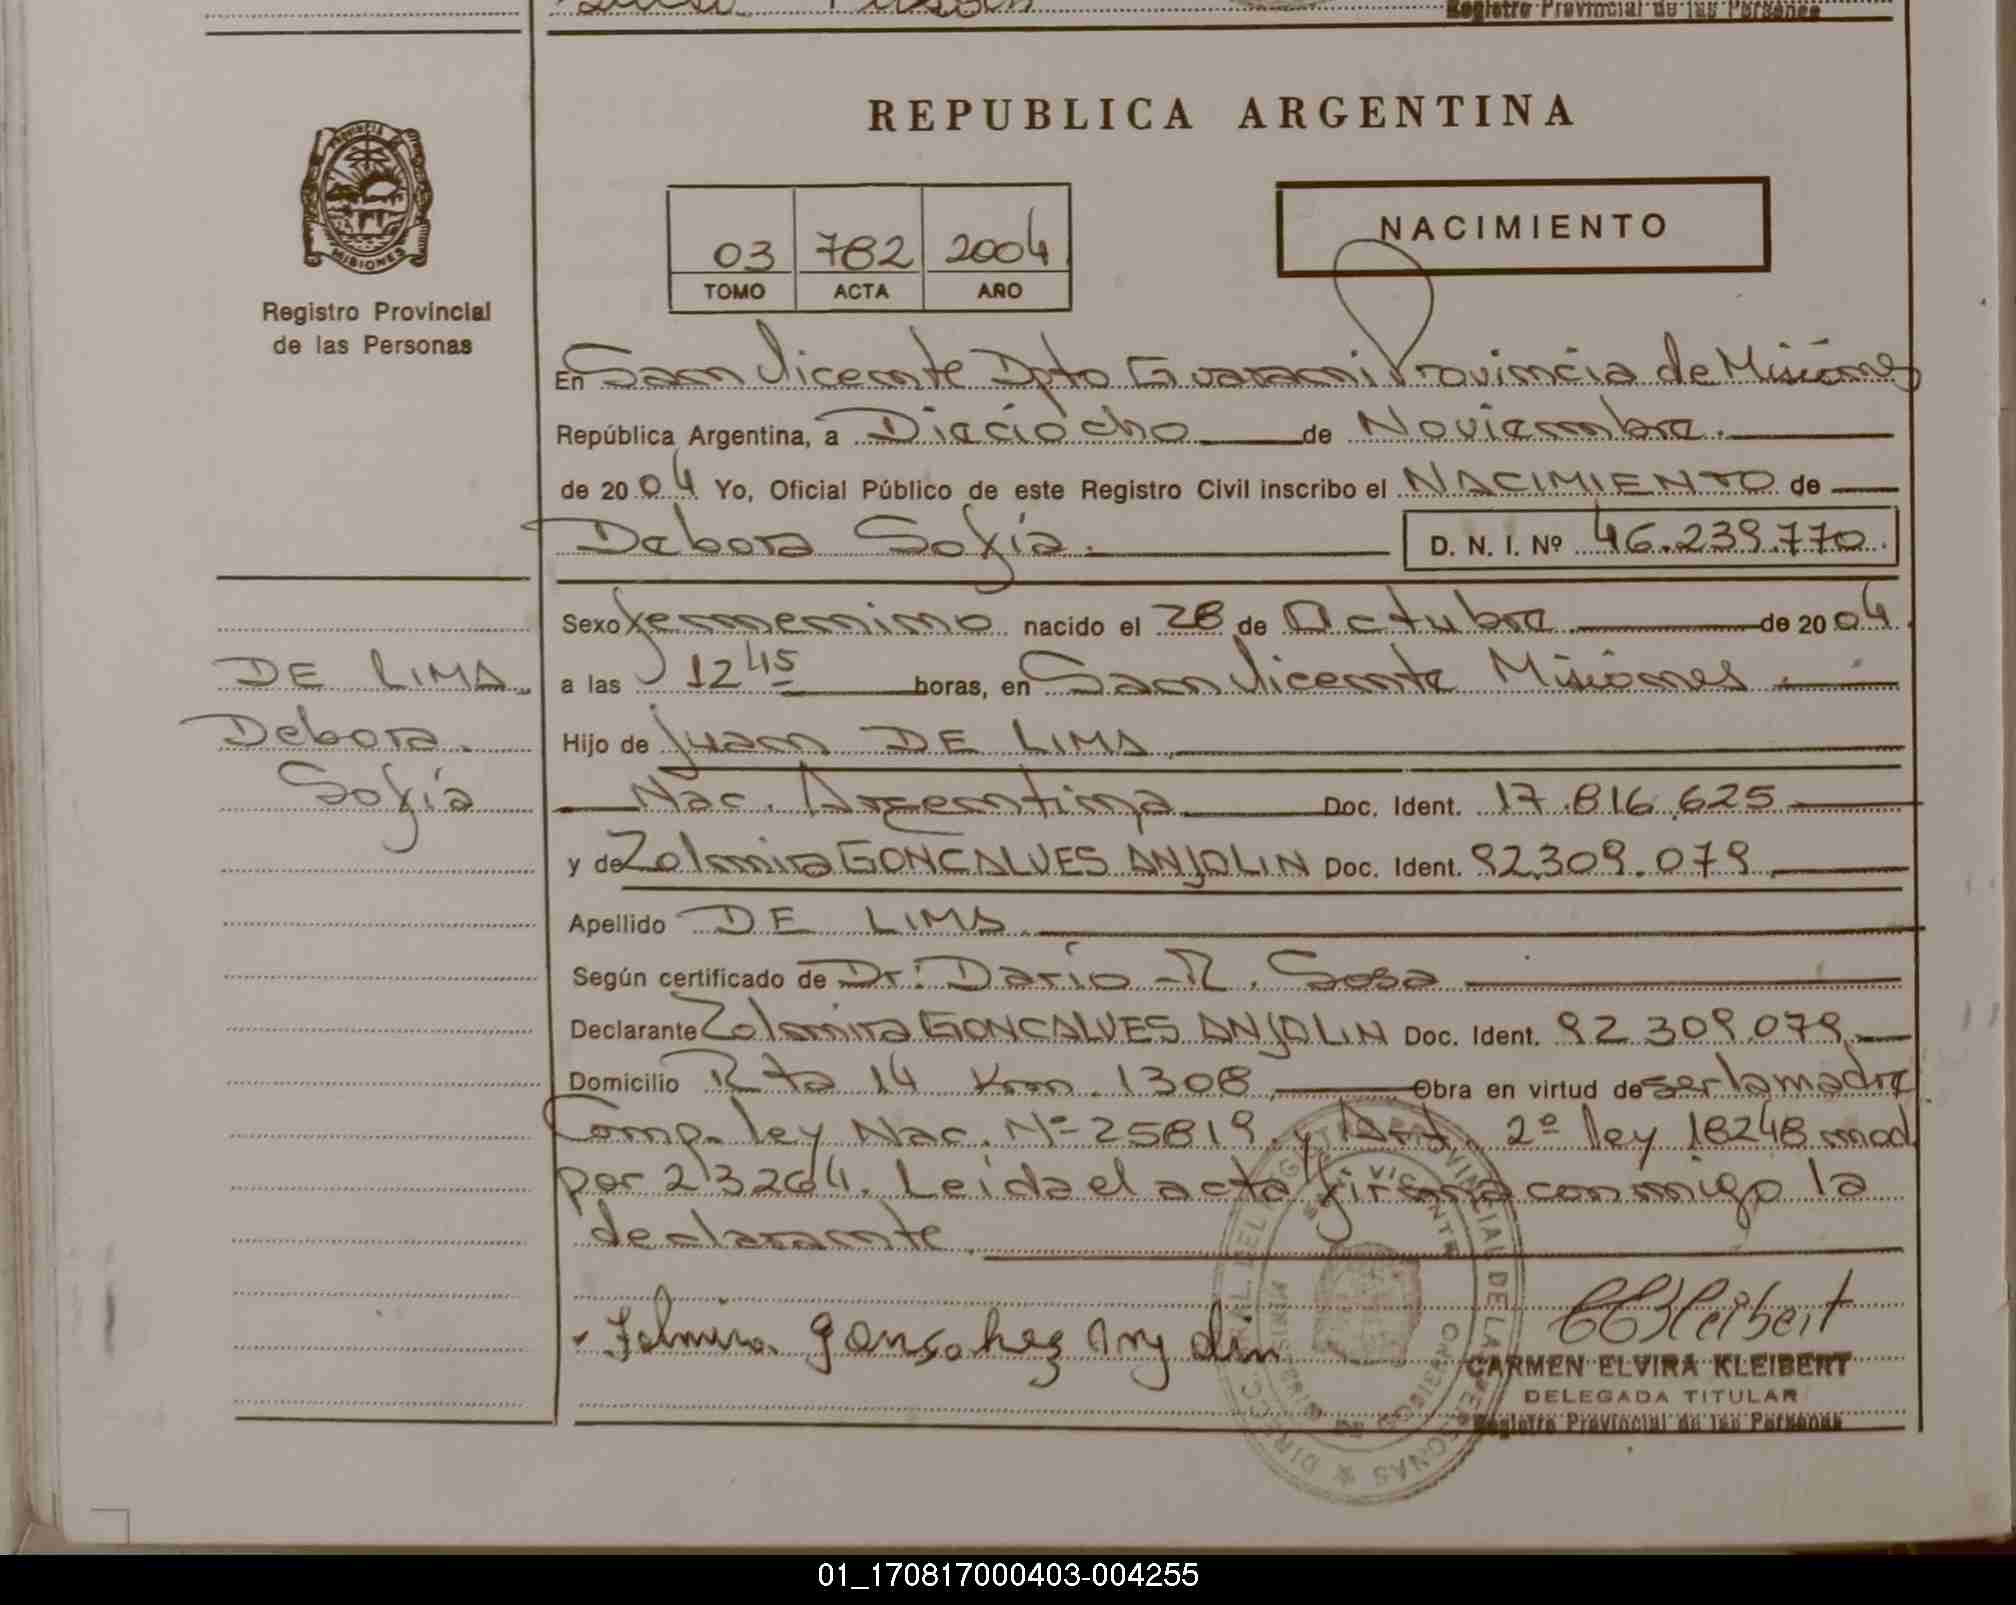 Registro Provincial de las Personas
REPUBLICA ARGENTINA
PROVINCIA DE
MISIONES
Registro Provincial
de las Personas
03 782 2004
TOMO ACTA AÑO
NACIMIENTO
En San Vicente Dpto Guarani Provincia de Misiones
República Argentina, a Dieciocho de Noviembre.
de 2004 Yo, Oficial Público de este Registro Civil inscribo el NACIMIENTO de
Debora Sofía. D. N. I. Nº 46.239.770.
Sexo femenino nacido el 28 de Octubre de 2004
a las 12 45 horas, en San Vicente Misiones
DE LIMA
Debora.
Sofía
Hijo de Juan DE LIMA
Nac. Argentina Doc. Ident. 17.816.625
y de Zelmira GONCALVES ANJOLIN Doc. Ident. 92.309.079
Apellido DE LIMA
Según certificado de Dr: Dario R. Sosa
Declarante Zelmira GONCALVES ANJOLIN Doc. Ident. 92.309.079
Domicilio Rta 14 Km. 1308 Obra en virtud de ser la madre
Comp. ley Nac. Nº 25819. y Art. 2º ley 18248 mod
por 23264. Leida el acta firma conmigo la
declarante
CARMEN ELVIRA KLEIBERT
DELEGADA TITULAR
Registro Provincial de las Personas
01_170817000403-004255